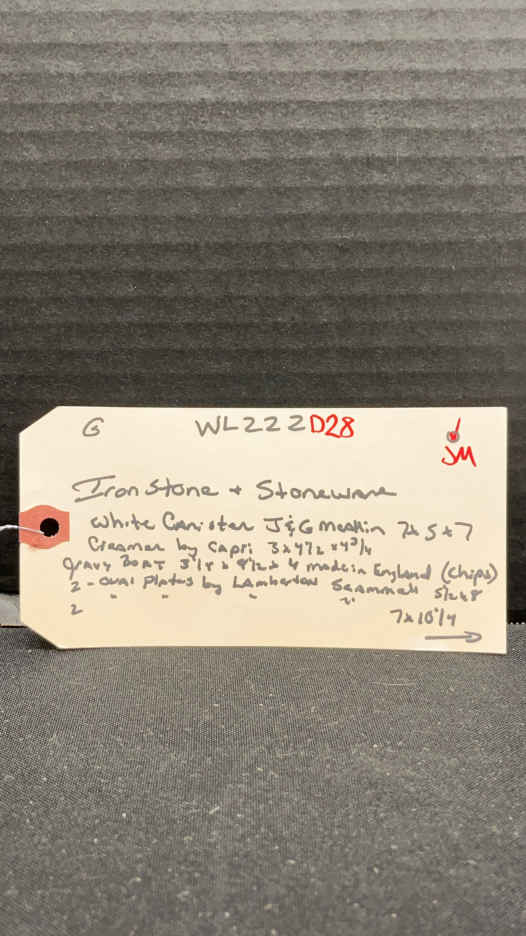 G WL222 D28
JM
Iron Stone + Stoneware
White Canister J&G Meakin 7x5x7
Creamer by Capri 3x4 1/2 x4 3/4
gravy Boat x 8 1/2 x 4 made in England (chips)
2 - oval Plates by Lamberton Scammell 5 1/2 x8
2 " " " " 7x10 1/4